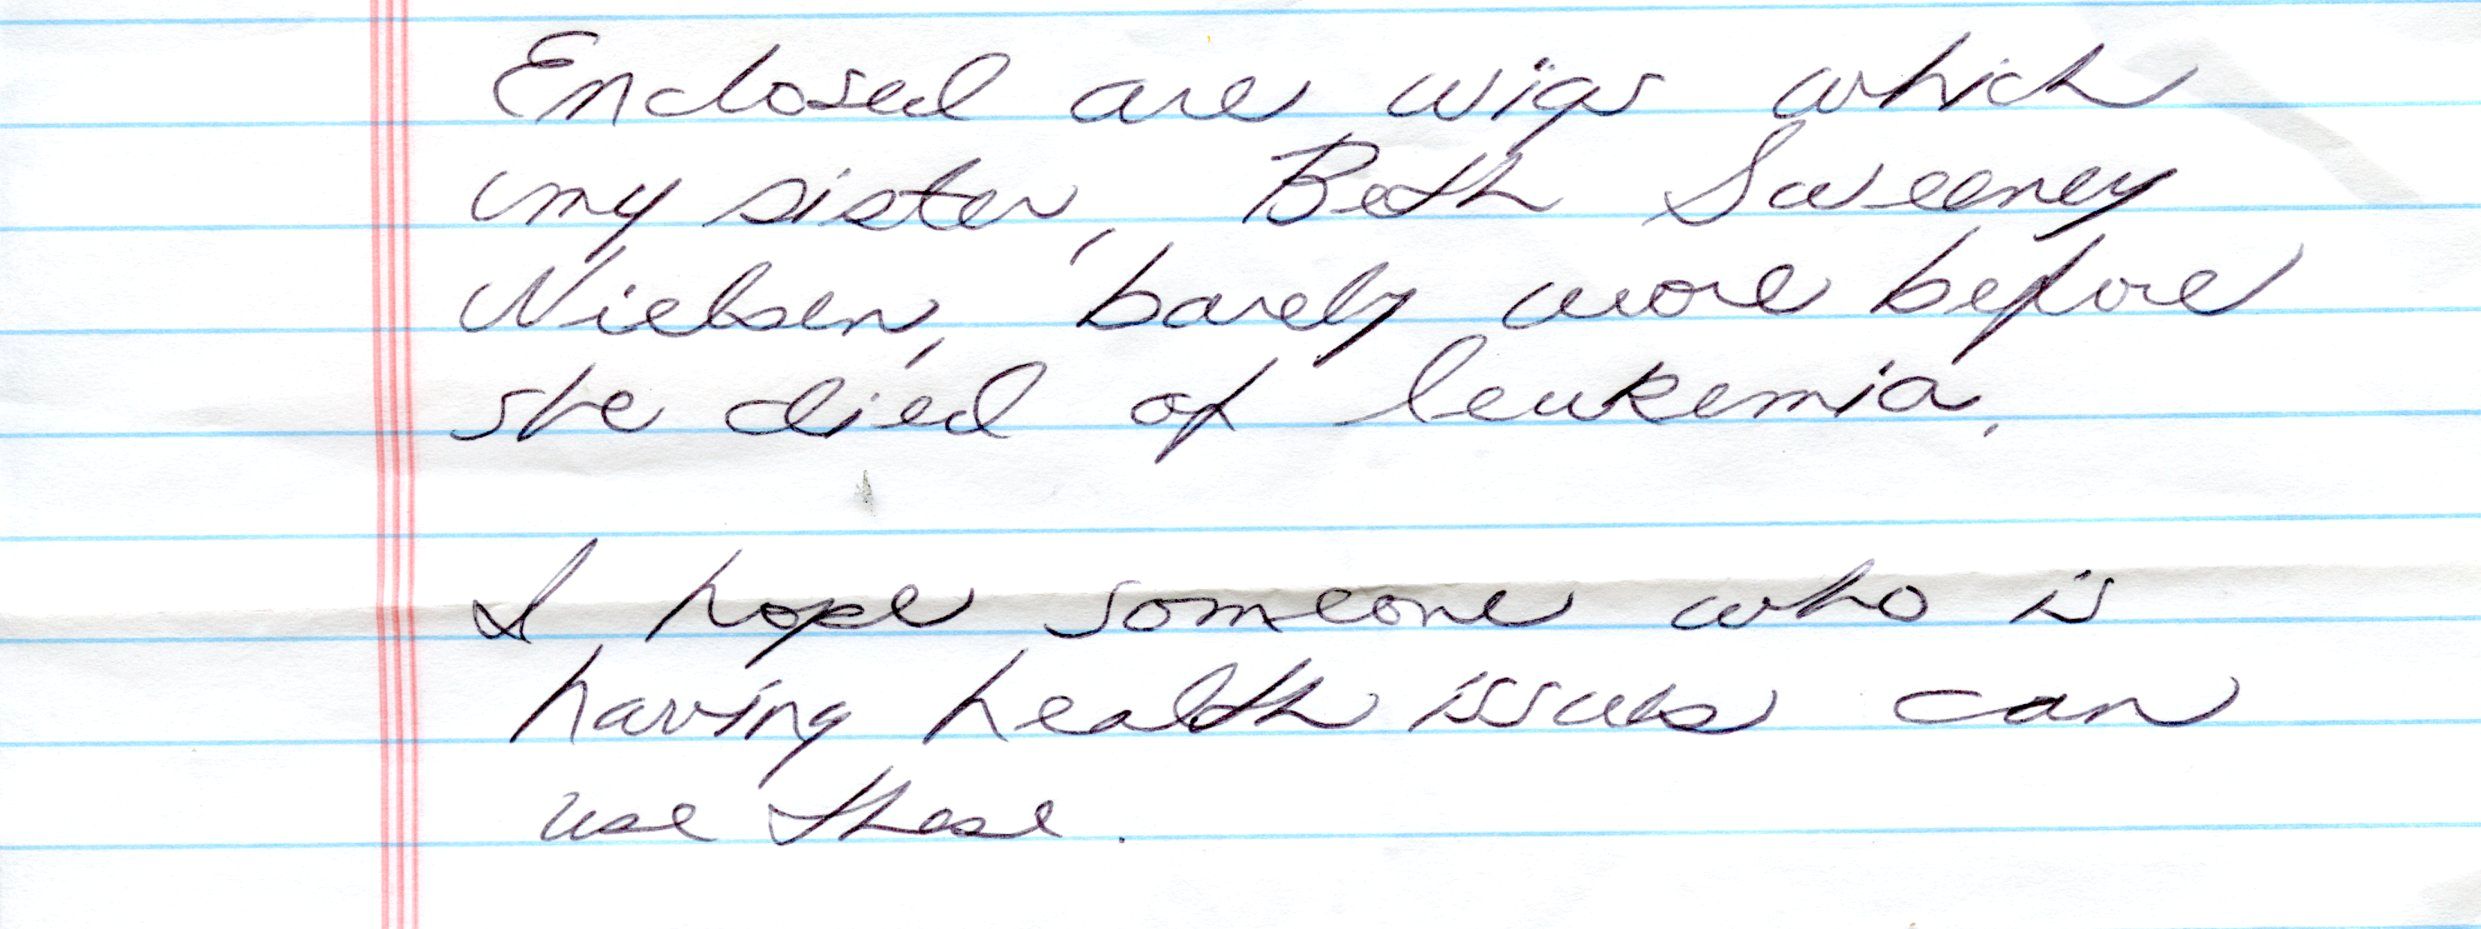 Enclosed are wigs which
my sister, Beth Sweeney
Nielsen, barely wore before
she died of leukemia.
I hope someone who is
having health issues can
use these.